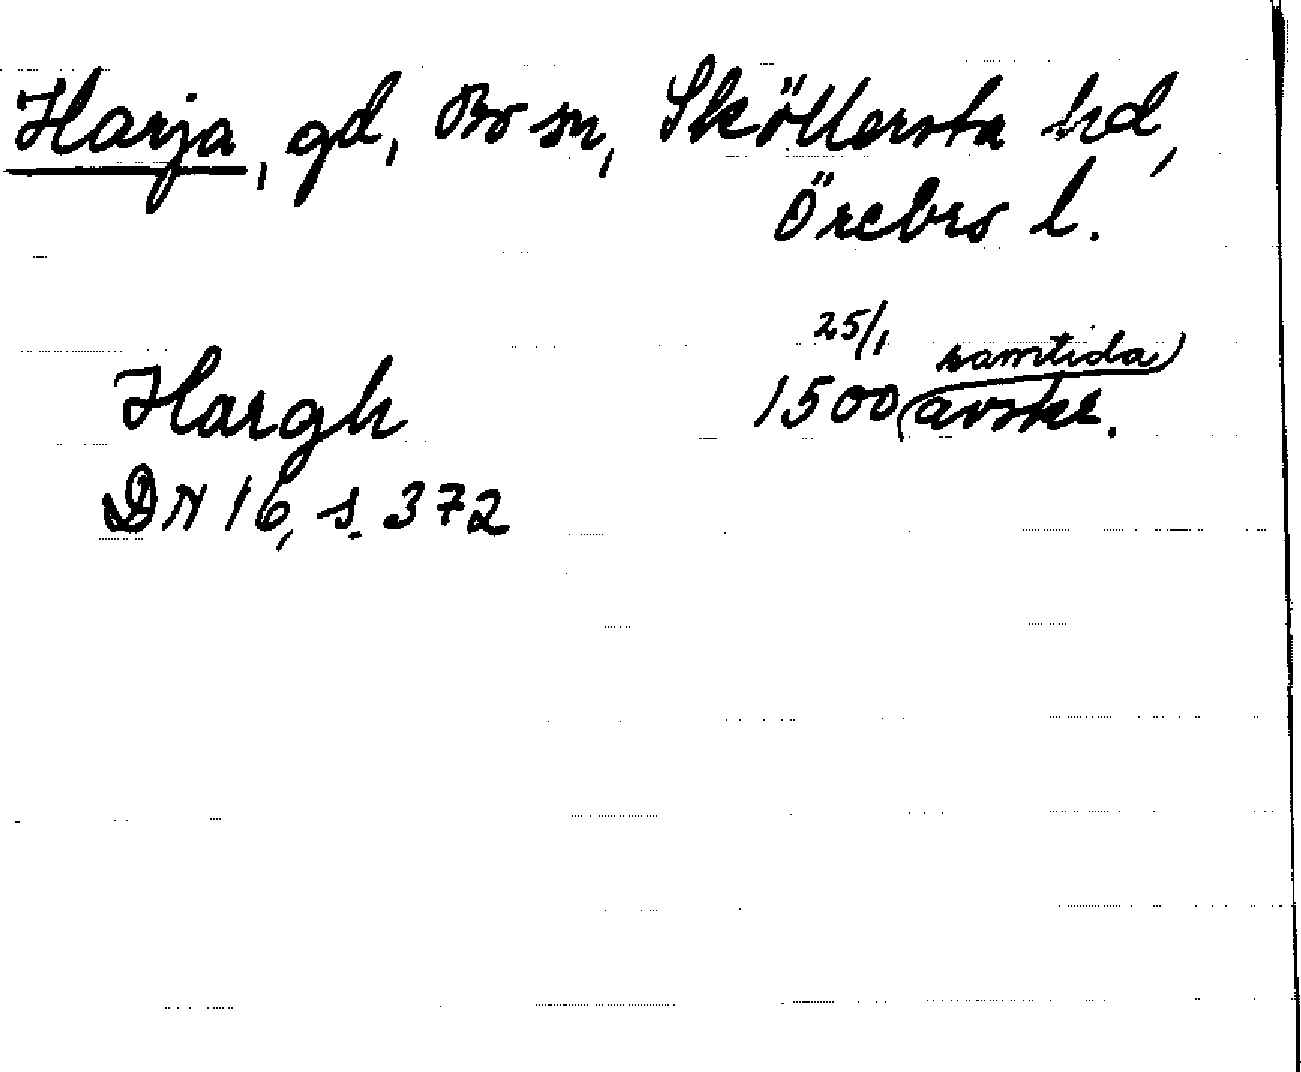 Harja, gd, Bo sn, Sköllersta hd,
Örebro l.
25/1 samtida)
Hargh 1500 (avskr.
DN 16, s. 372